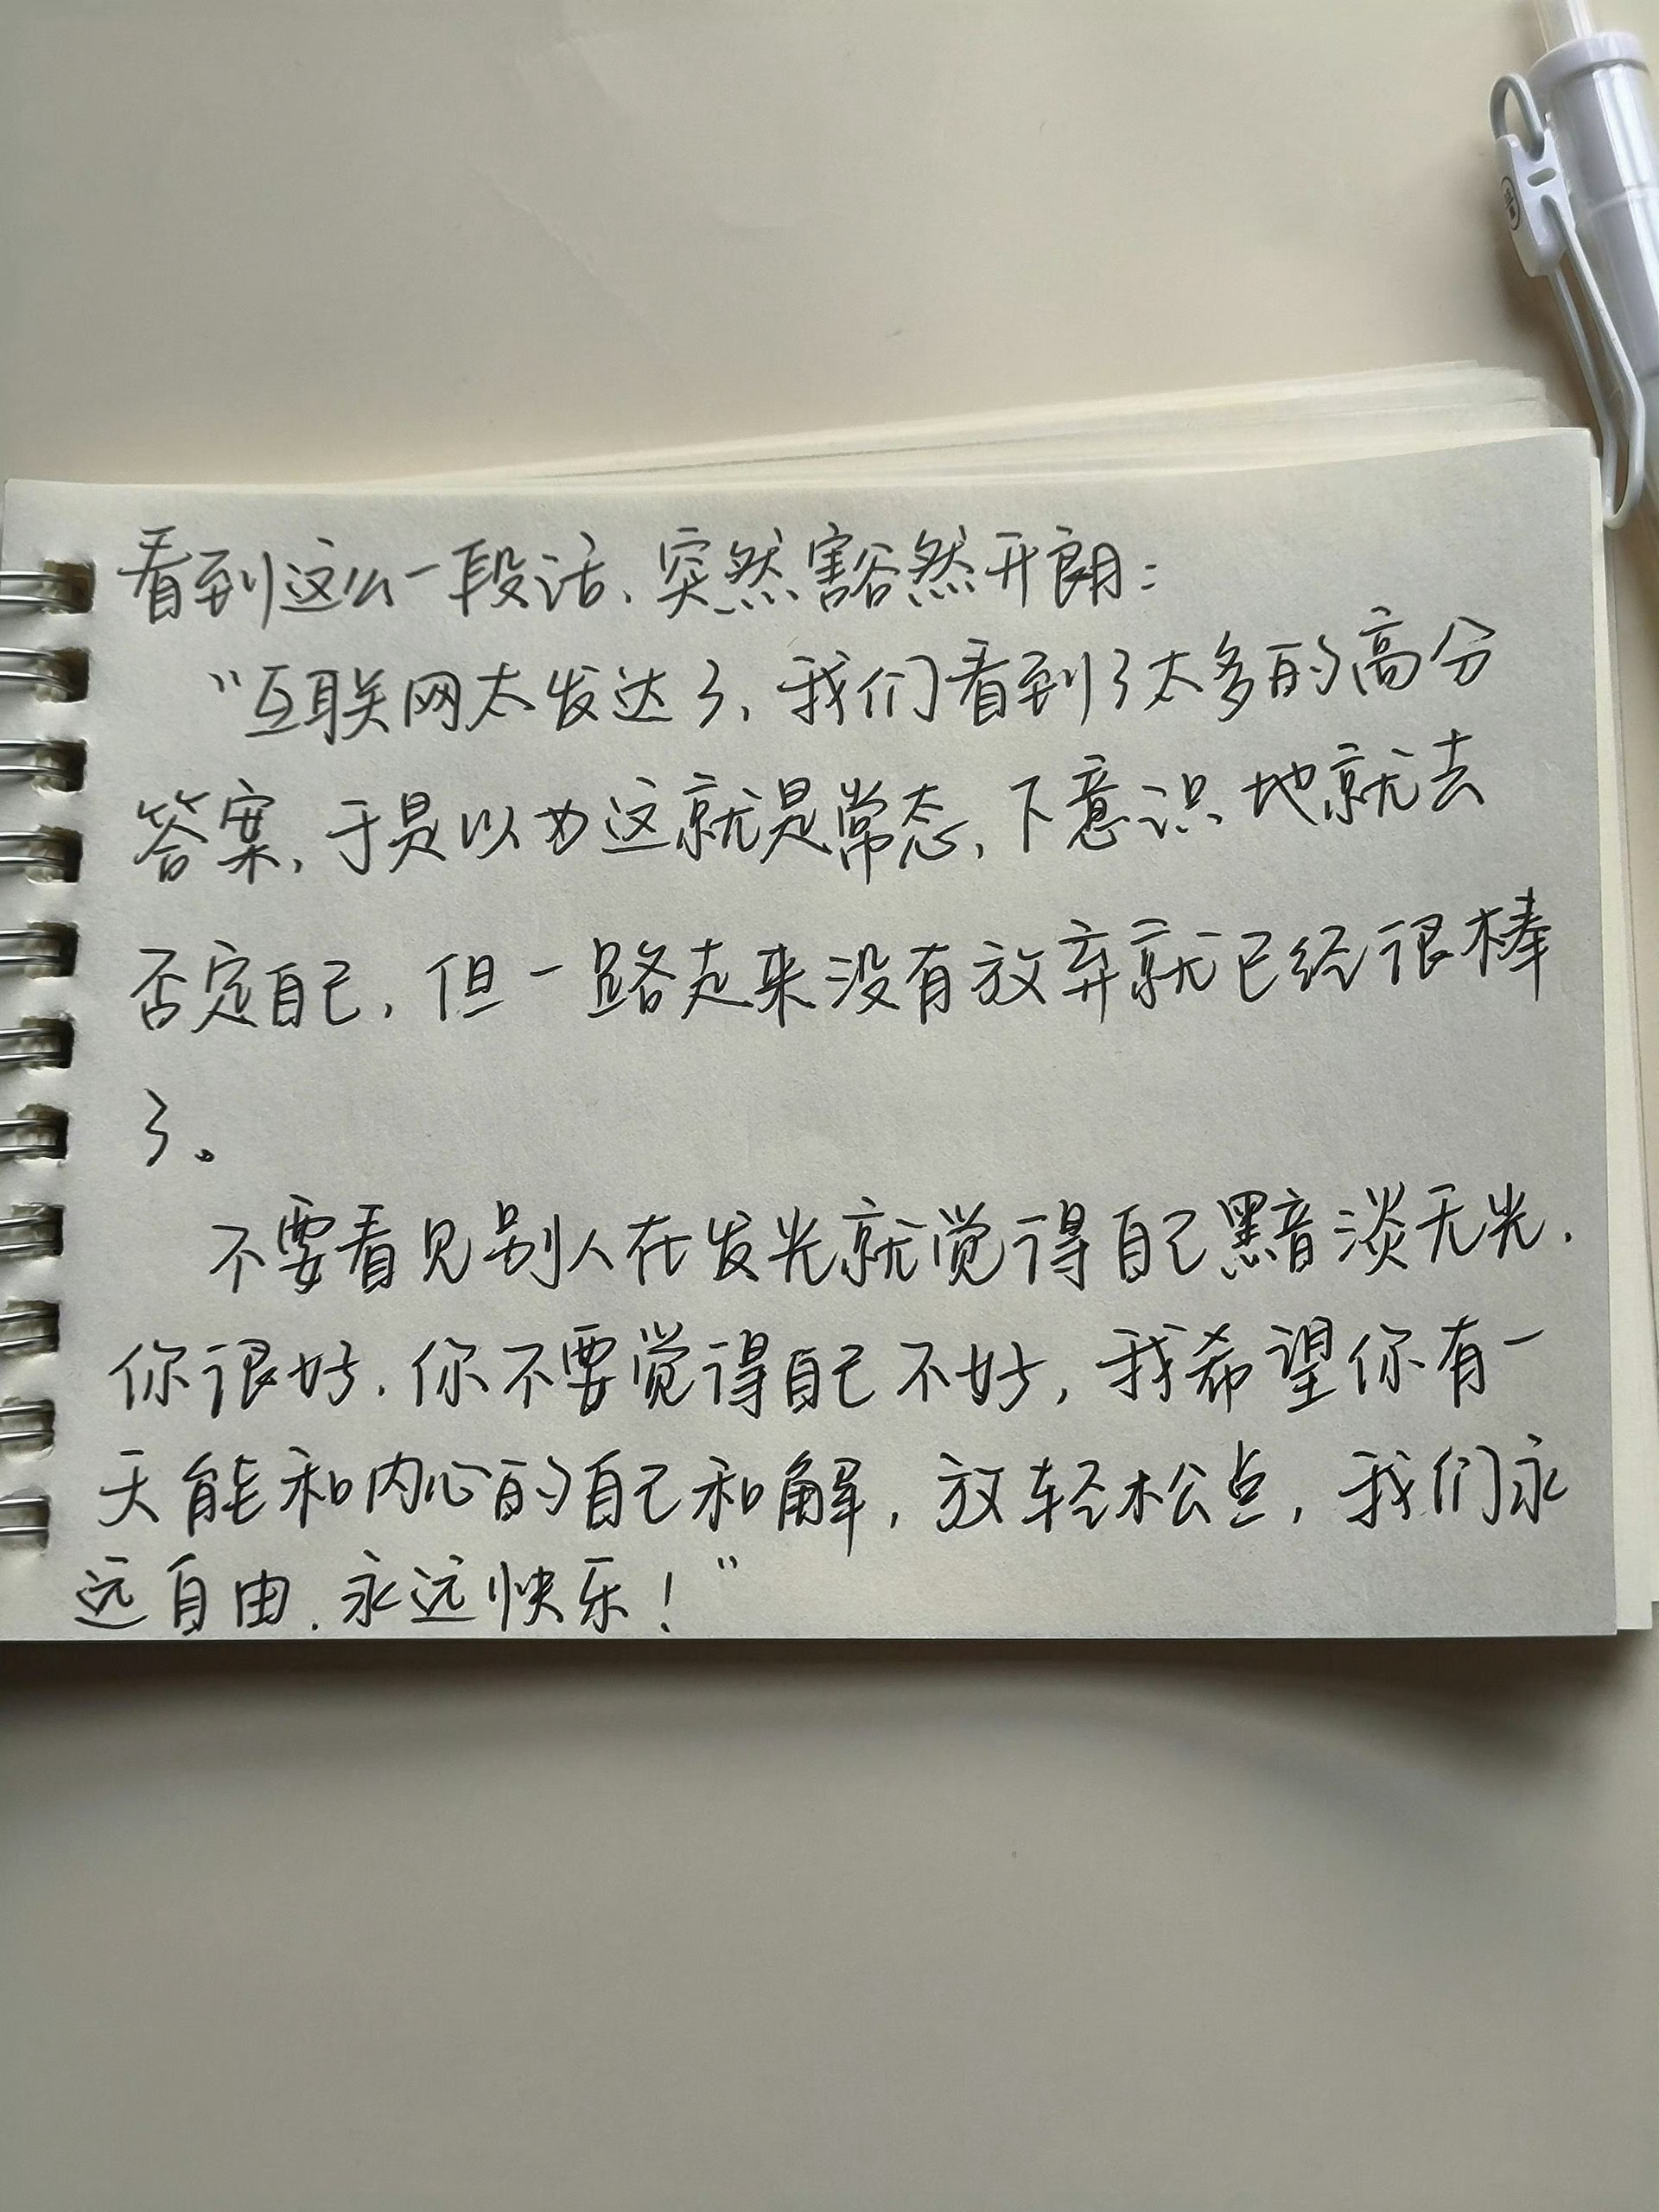 看到这么一段话、突然豁然开朗：
“互联网太发达了，我们看到了太多的高分
答案，于是以为这就是常态，下意识地就去
否定自己，但一路走来没有放弃就已经很棒
了。
不要看见别人在发光就觉得自己黯淡无光，
你很好，你不要觉得自己不好，我希望你有一
天能和内心的自己和解，放轻松点，我们永
远自由，永远快乐！”